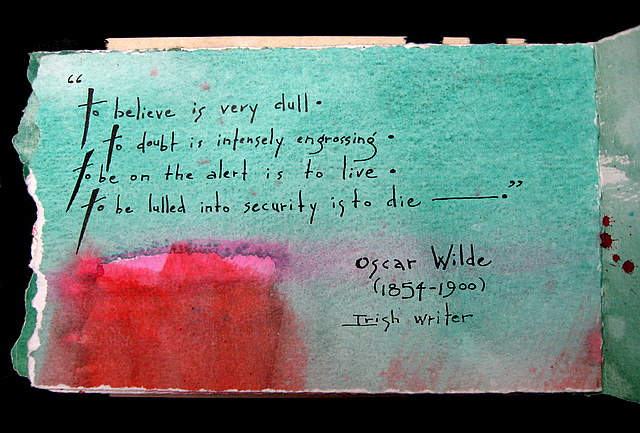 “
To believe is very dull.
To doubt is intensely engrossing.
To be on the alert is to live.
To be lulled into security is to die ——.”
Oscar Wilde
(1854-1900)
Irish writer